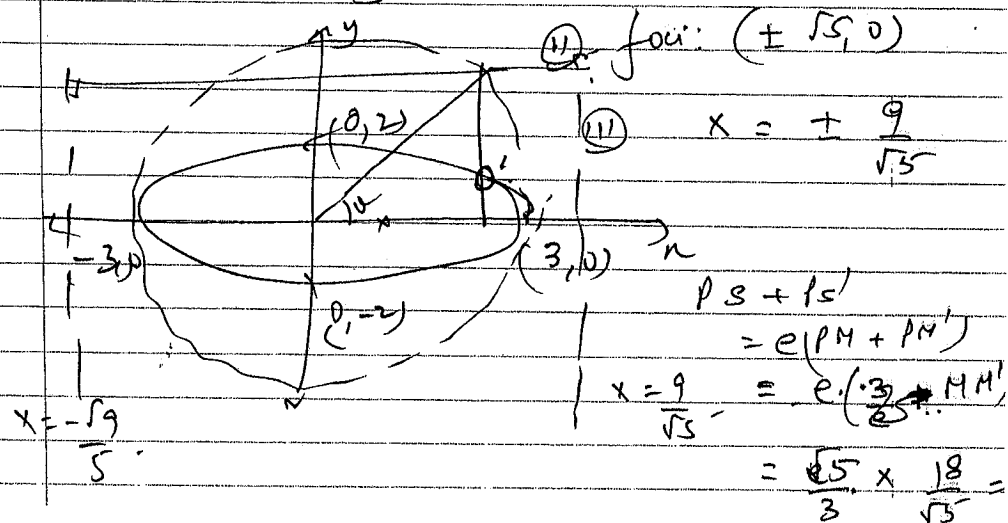 y
(ii) foci: (± √5, 0)
(0, 2)
(iii) x = ± 9/√5
-3,0
(3, 0)
x
(0, -2)
PS + PS'
= e(PM + PM')
x = 9/√5
= e. MM'
x = -√9/5
= √5/3 × 18/√5 =